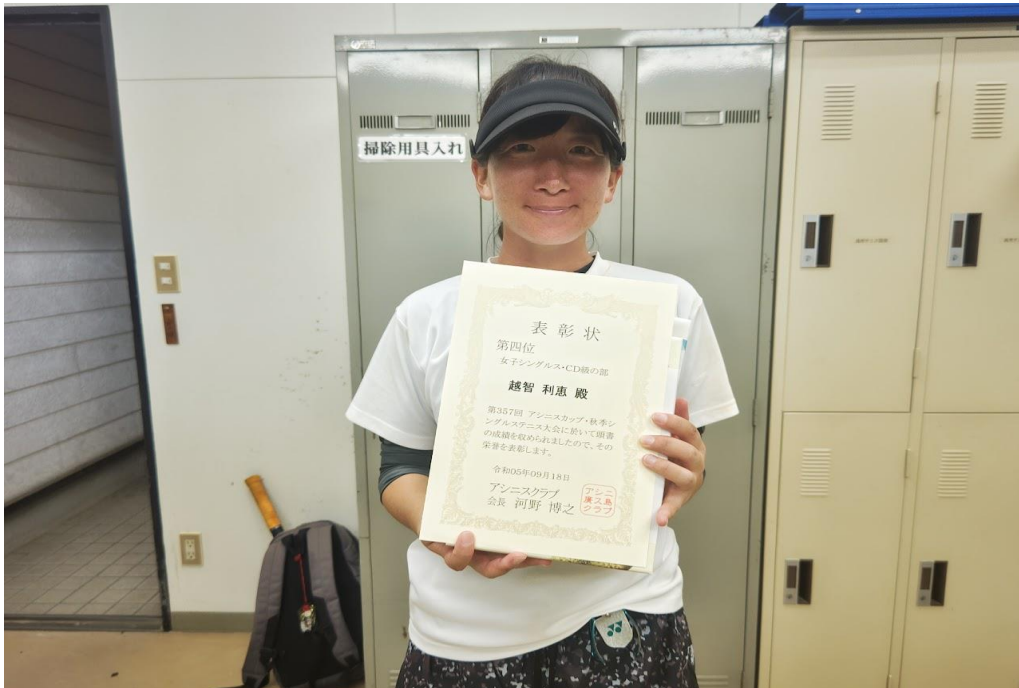 掃除用具入れ
表彰状
第四位
女子シングルス・CD級の部
越智 利恵 殿
第357回 アシニスカップ・秋季シ
ングルステニス大会に於いて頭書
の成績を収められましたので、その
栄誉を表彰します。
令和05年09月18日
アシニスクラブ
会長 河野 博之
アシニ
広ス島
クラブ